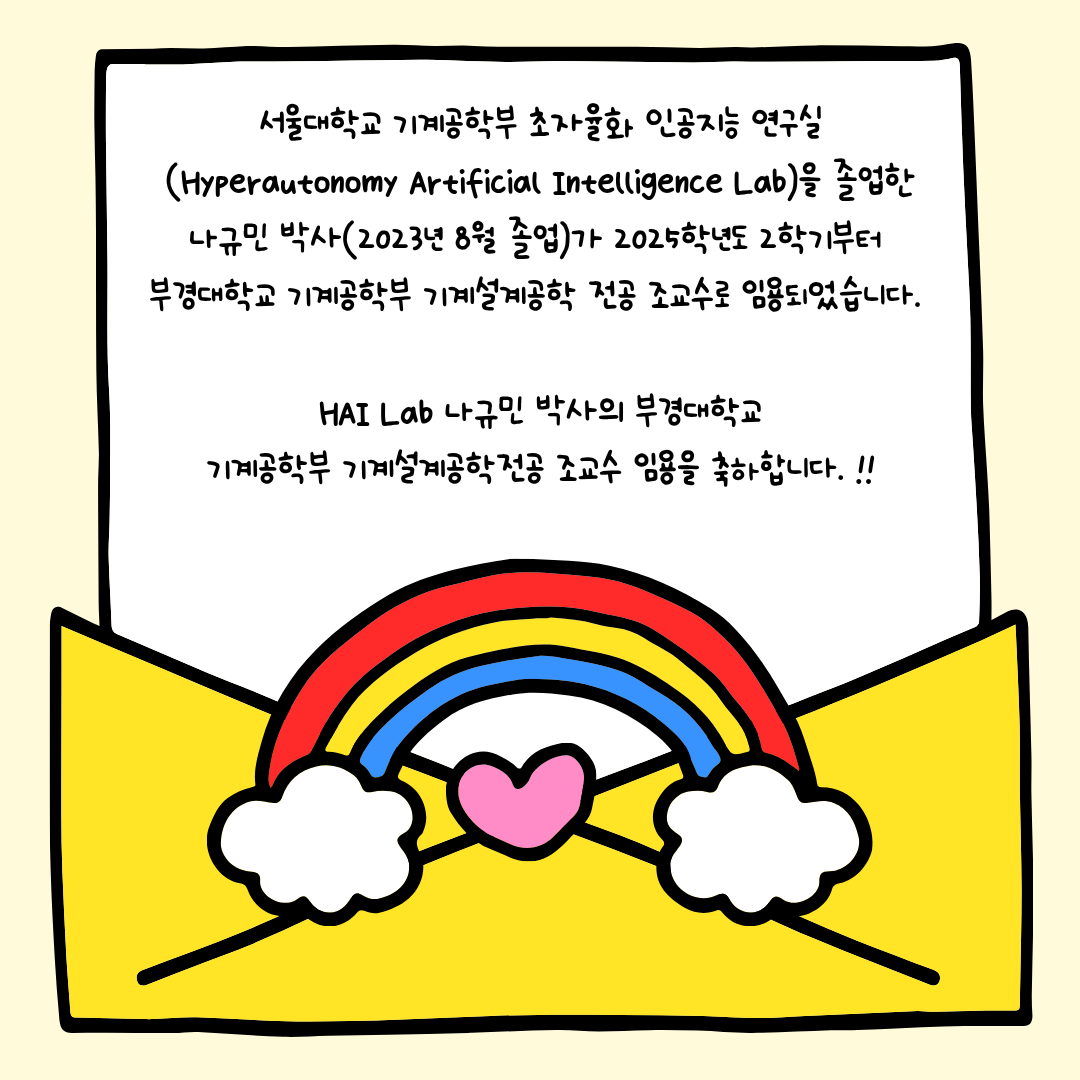 서울대학교 기계공학부 초자율화 인공지능 연구실
(Hyperautonomy Artificial Intelligence Lab)을 졸업한
나규민 박사(2023년 8월 졸업)가 2025학년도 2학기부터
부경대학교 기계공학부 기계설계공학 전공 조교수로 임용되었습니다.
HAI Lab 나규민 박사의 부경대학교
기계공학부 기계설계공학전공 조교수 임용을 축하합니다. !!